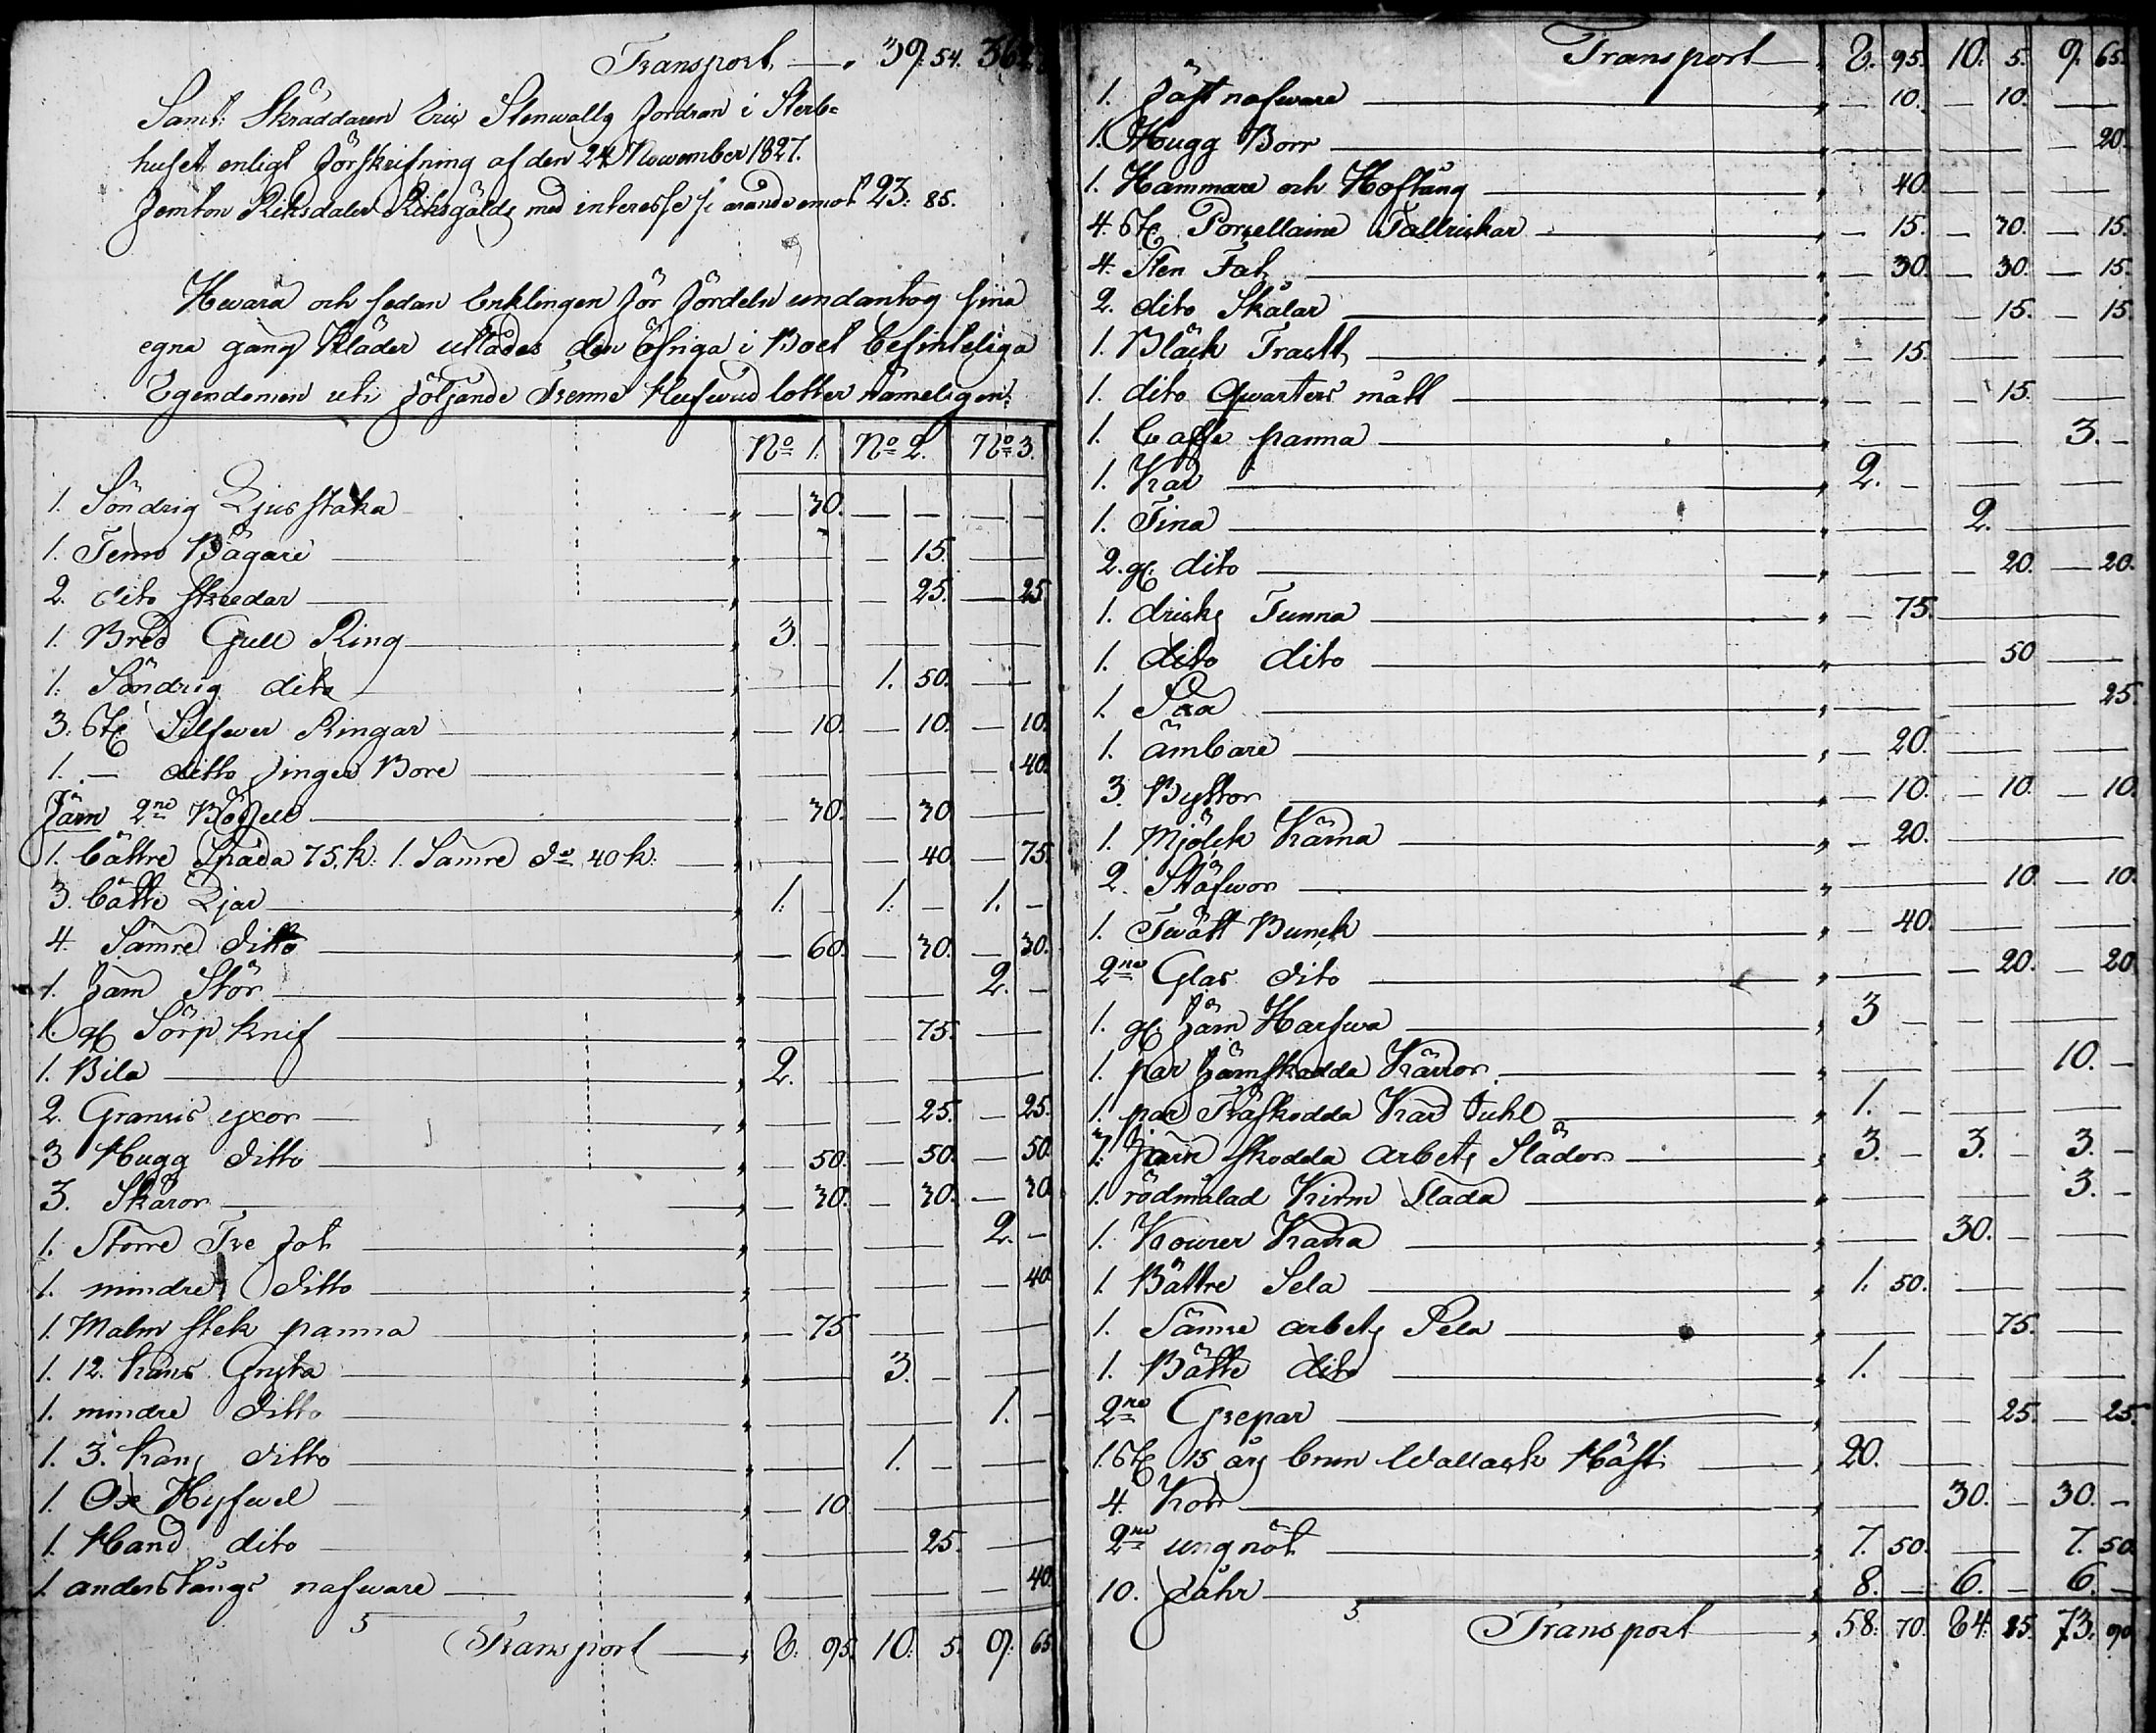 Transport — 39. 54. 362
Samt. Skräddaren Eric Stenwalls fordran i Sterb=
huset enligt förskrifning af den 24 November 1827.
Femton Riksdaler Riksgälds med interesse / emot 23: 85.
Hewara och sedan Enklingen för fördeln undantog sina
egna gång Kläder utlades den öfriga i Boet befinteliga
Egendomen uti följande Trenne Hufwud lotter nämeligen:
No 1. No 2. No 3.
1. Söndrig Ljusstaka — 30. — — — —
1. Tenn Bägare — — — 15. — —
2. dito skedar — — — 25. — 25.
1. Bred Gull Ring 3. — — — — —
1. Söndrig dito — — 1. 50. — —
3. St Silfwer Ringar — 10. — 10. — 10.
1. — ditto finger Bore — — — — — 40.
Järn 2ne Böjell — 30. — 30 — —
1. bättre Spada 75. k: 1. Sämre do 40 k: — — — 40. — 75.
3. bättre Ljar 1. — 1. — 1. —
4. Sämre ditto — 60. — 30. — 30.
1. Järn Stör — — — — 2. —
1. gl Sörp knif — — — 75. — —
1. Bila 2. — — — — —
2. Granris yxor — — — 25. — 25.
3 Hugg ditto — 50. — 50. — 50.
3. Skäror — 30. — 30. — 30
1. Större Tre fot — — — — 2. —
1. mindre ditto — — — — — 40
1. Malm stek panna — 75 — — — —
1. 12. kans Gryta — — 3. — — —
1. mindre ditto — — — — 1. —
1. 3. kans ditto — — 1. — — —
1. Ox Hyfwel — 10 — — — —
1. Hand dito — — — 25. — —
1. anderstångs nafware — — — — — 40
Transport — 8. 95. 10. 5. 9. 65
Transport 8. 95. 10. 5. 9. 65.
1. fäst nafware — 10. — 10. — —
1. Hugg Borr — — — — — 20.
1. Hammare och Hoftång — 40. — — — —
4. St Porsellaine Tallrickar — 15. — 30. — 15.
4. Sten Fat — 30. — 30. — 15.
2. dito Skålar — — — 15. — 15.
1. Bläck Tractt — 15. — — — —
1. dito Qwarters mått — — — 15. — —
1. Caffe panna — — — — 3. —
1. Kar 2. — — — — —
1. Tina — — 2. — — —
2. gl. dito — — — 20. — 20.
1. dricks Tunna — 75. — — — —
1. dito dito — — — 50 — —
1. Såa — — — — — 25.
1. ämbare — 20. — — — —
3. Byttor — 10. — 10. — 10.
1. Mjölck kärna — 20. — — — —
2. Stäfwor — — — 10. — 10.
1. Twätt Bunck — 40. — — — —
2ne Glas dito — — — 20. — 20
1. gl. Järn Harfwa 3 — — — — —
1. par Järnskodda Kärror — — — — 10. —
1. par Träskodda Kär 1. — — — — —
3. Järn skodda arbets Slädor 3. — 3. — 3. —
1. rödmålad Kirm Släda — — — — 3. —
1. Kowrer Kärra — — 30. — — —
1. Bättre Sela 1. 50. — — — —
1. Sämre arbets Sela — — — 75. — —
1. Bättre dito 1. — — — — —
2ne Grepar — — — 25. — 25.
1. St 15 års brun Wallack Häst 20. — — — — —
4. Kor — — 30. — 30. —
2ne ungnöt 7. 50. — — 7. 50.
10. Fåhr 8. — 6. — 6. —
Transport 58. 70. 84. 85. 73. 90